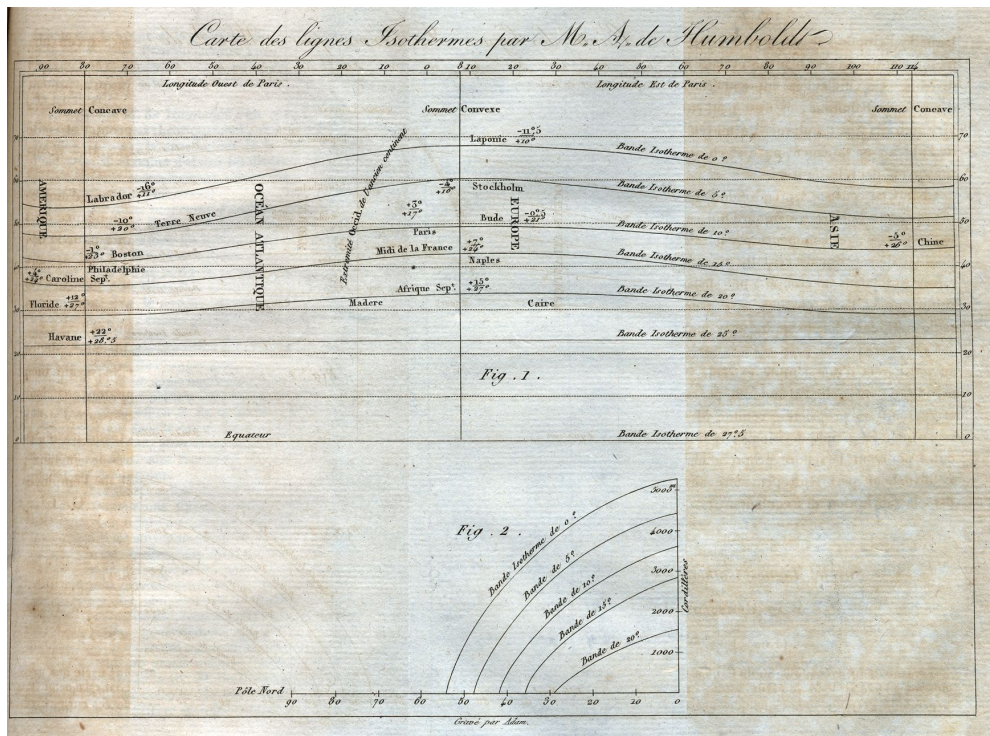 Carte des lignes Isothermes par M. A. de Humboldt
90 80 70 60 50 40 30 20 10 0 8 10 20 30 40 50 60 70 80 90 100 110 114
Longitude Ouest de Paris. Longitude Est de Paris.
Sommet Concave Sommet Convexe Sommet Concave
70
Laponie -11°5 +10°
Bande Isotherme de 0°
60
AMERIQUE
Labrador -16° +11°
OCÉAN ATLANTIQUE
Extremité Occid. de l'ancien continent
-4° +18° Stockholm
Bande Isotherme de 5°
-10° +20° Terre Neuve
+3° +17°
Bude -0°5 +21°
EUROPE
ASIE
50
Paris
Bande Isotherme de 10°
-5° +26° Chine
-1° +23° Boston
Midi de la France +7° +24°
Naples
Bande Isotherme de 15°
40
Caroline Philadelphie
Sept.
Floride +12° +27°
Afrique Sept. +15° +27°
Madere
Caire
Bande Isotherme de 20°
30
Havane +22° +28°5
Bande Isotherme de 25°
20
Fig. 1.
10
Equateur
Bande Isotherme de 27°5
0
Fig. 2.
5000m
4000
3000
2000
1000
Cordillères
Bande Isotherme de 0°
Bande de 5°
Bande de 10°
Bande de 15°
Bande de 20°
Pôle Nord
90 80 70 60 50 40 30 20 10 0
Gravé par Adam.